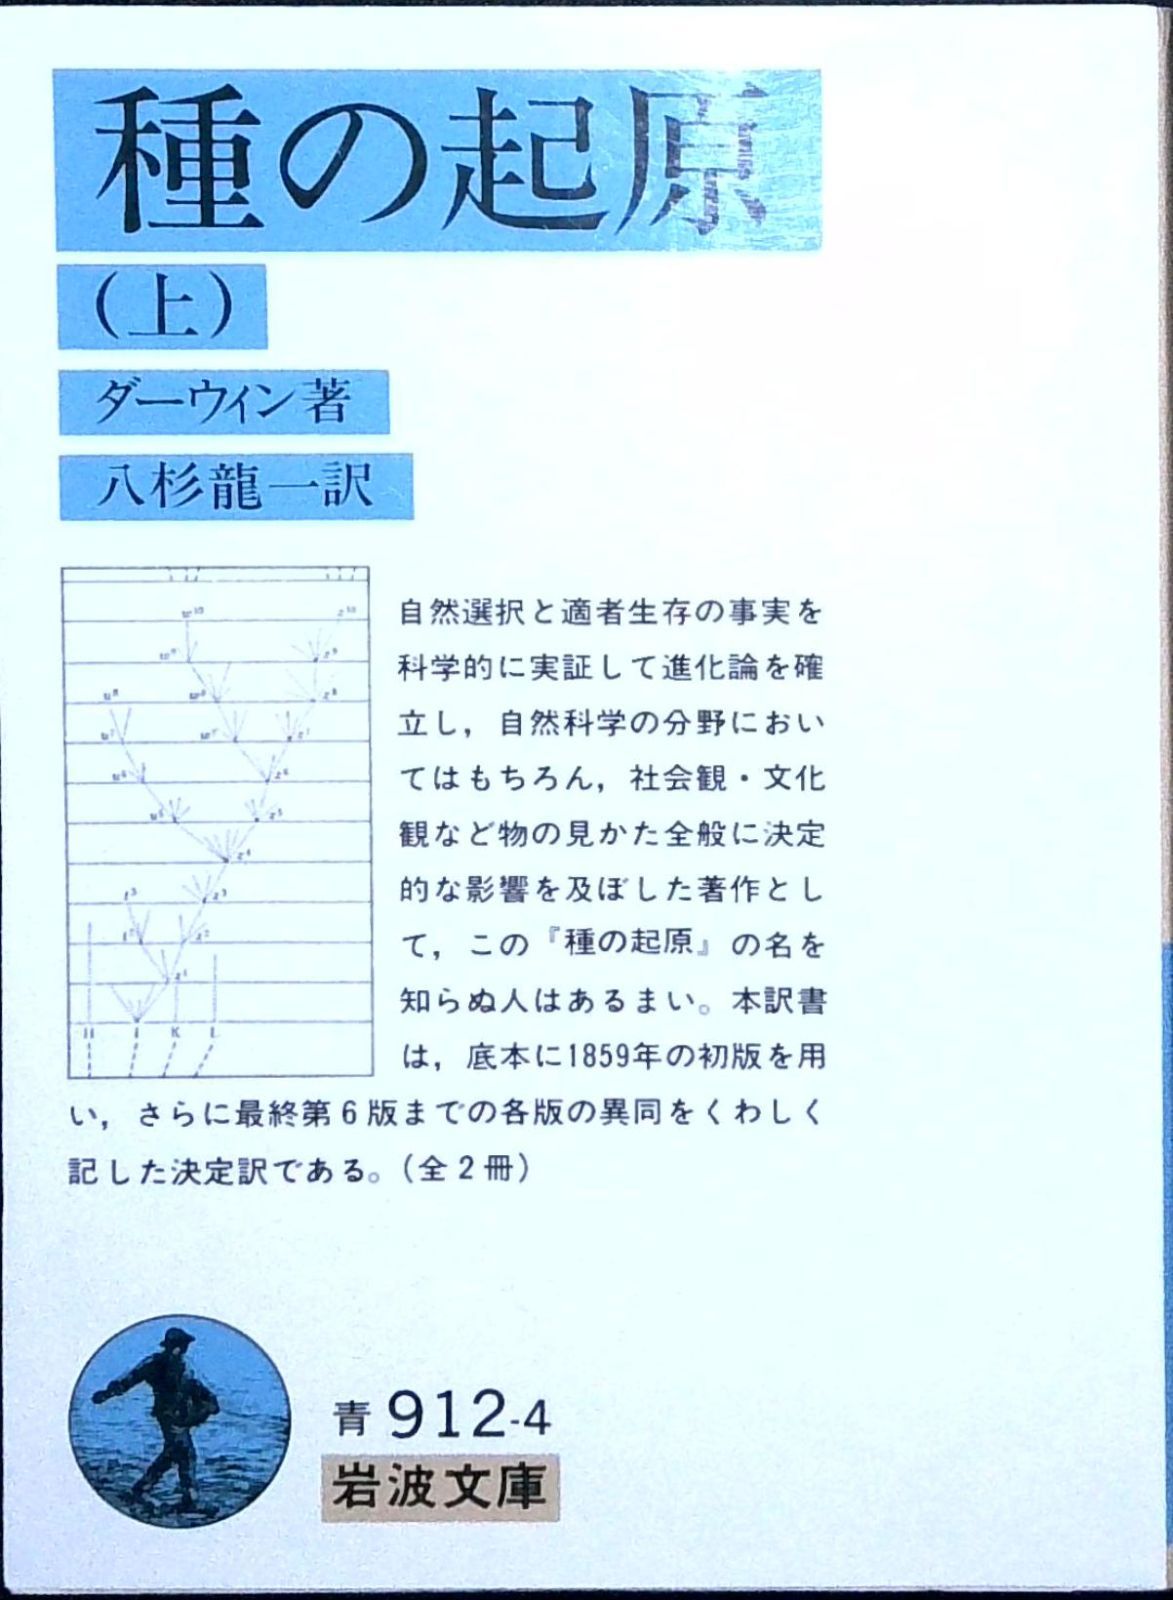 種の起原
(上)
ダーウィン著
八杉龍一訳
自然選択と適者生存の事実を
科学的に実証して進化論を確
立し，自然科学の分野におい
てはもちろん，社会観・文化
観など物の見かた全般に決定
的な影響を及ぼした著作とし
て，この『種の起原』の名を
知らぬ人はあるまい。本訳書
は，底本に1859年の初版を用
い，さらに最終第6版までの各版の異同をくわしく
記した決定訳である。(全2冊)
z⁴
z³
z²
z¹
I K L
青 912-4
岩波文庫